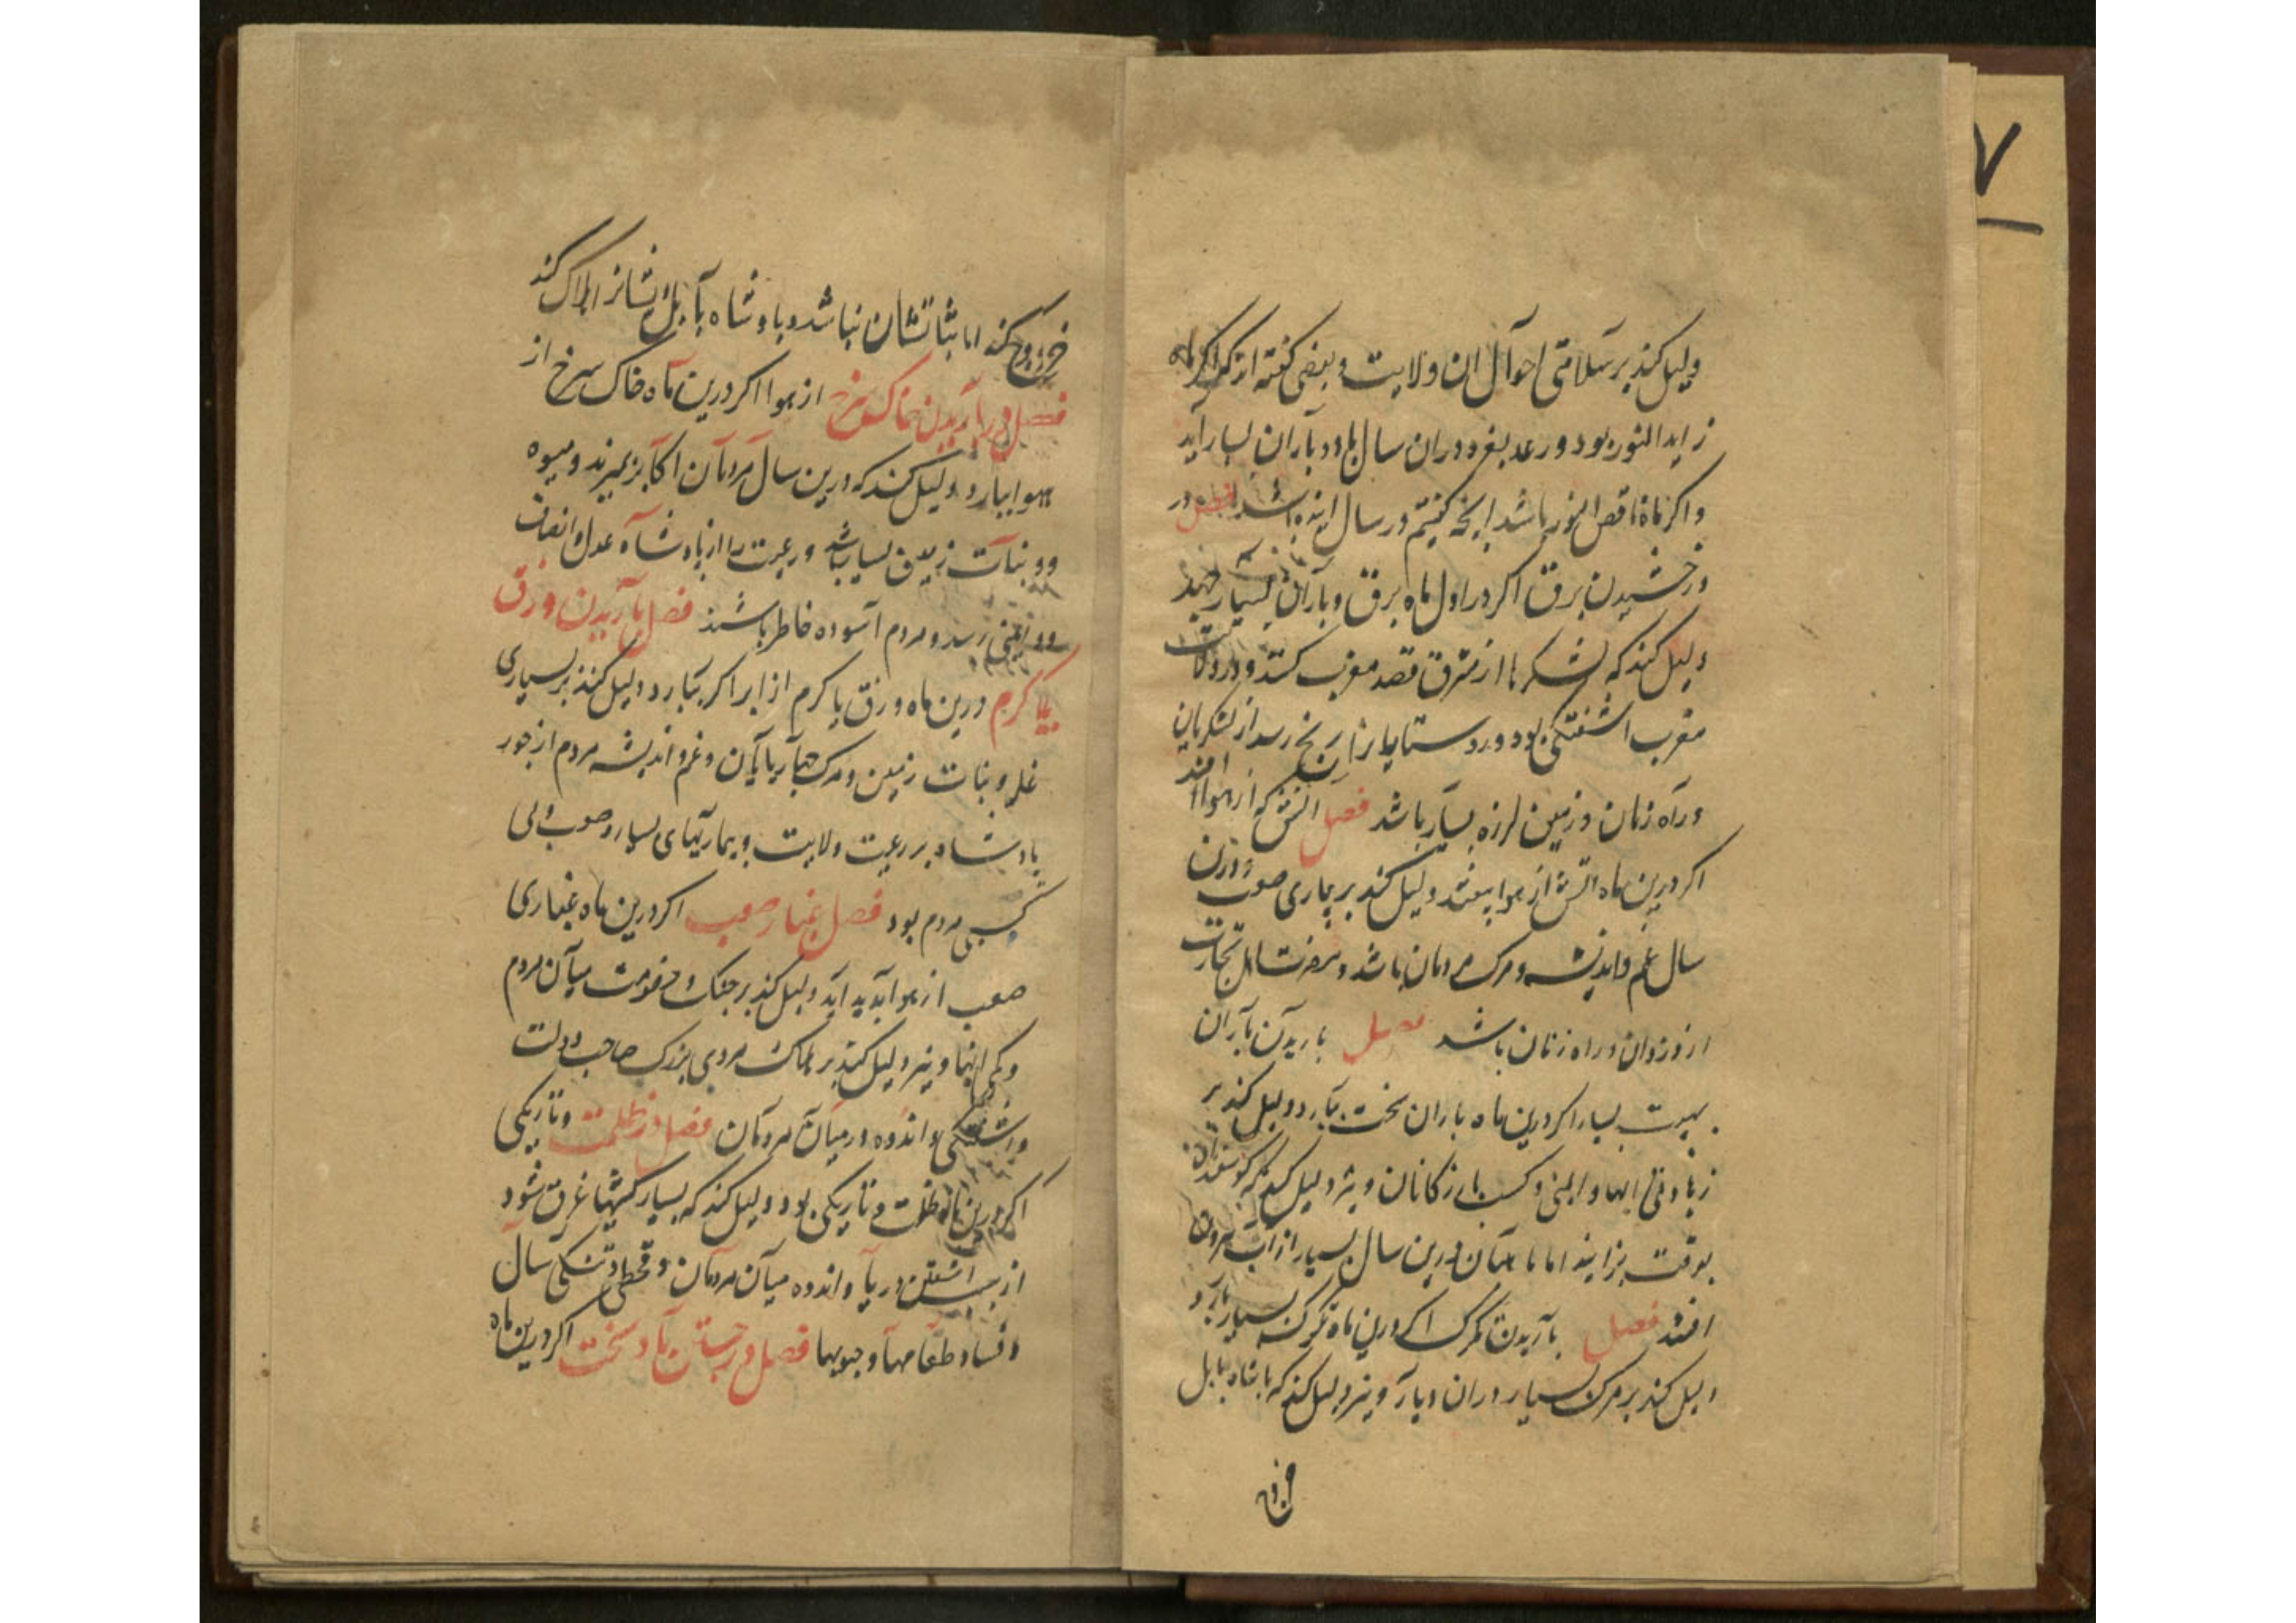 دلیل کند بر سلامتی احوال ان ولایت و بعضی گفته اند که اگر ماه
زاید النور بود و رعد بغرد دران سال باد و باران بسیار آید
و اگر ماه ناقص النور باشد اینچه گفتیم در سال اینده باشد فصل در
درخشیدن برق اگر در اول ماه برق و باران بسیار جهد
دلیل کند که لشکرها از مشرق قصد مغرب کنند و در ولایت
مغرب اشفتگی بود و روستاییانرا رنج رسد از لشکریان
و راه زنان و زمین لرزه بسیار باشد فصل اتش که از هوا افتد
اگر درین ماه اتش از هوا بیفتد دلیل کند بر بیماری صعب و درن
سال غم و اندیشه و مرک مردمان باشد و مضرت اهل تجارت
از دزدان و راه زنان باشد فصل باریدن باران
بهیبت بسیار اگر درین ماه باران سخت ببارد دلیل کند بر
زیادتی ابها و ایمنی و کسب بازرکانان و نیز دلیل کند که کوسفندان
بوقت بزایند اما ماهیان درین سال بسیار از اب بیرون
افتند فصل باریدن تکرک اگر درین ماه تکرک بسیار بارد
دلیل کند بر مرک بسیار دران دیار و نیز دلیل کند که بر پادشاه بابل
خروج
خروج کنند اما ثباتشان نباشد و پادشاه بابل ایشانرا هلاک کند
فصل در باریدن خاک سرخ از هوا اگر درین ماه خاک سرخ از
هوا ببارد دلیل کند که درین سال مردمان اکابر بمیرند و میوه
و نبات زمین بسیار باشد و رعیت را از پادشاه عدل و انصاف
و ایمنی رسد و مردم آسوده خاطر باشند فصل باریدن وزق
یا کرم درین ماه وزق یا کرم از ابر اگر ببارد دلیل کند بر بسیاری
غله و نبات زمین و مرک چهارپایان و غم و اندیشه مردم از جور
پادشاه بر رعیت ولایت و بیماریهای بسیار و صعب و بی
کسبی مردم بود فصل غبار صعب اگر درین ماه غباری
صعب از هوا پدید آید دلیل کند بر جنک و خصومت میان مردم
و کمی ابها و نیز دلیل کند بر هلاک مردی بزرک صاحب دولت
و اشفتکی و اندوه در میان مردمان فصل در ظلمت و تاریکی
اگر درین ماه ظلمت و تاریکی بود دلیل کند که بسیار کشتیها غرق شود
از سبب اشفتن دریا و اندوه میان مردمان و قحطی و تنکی سال
و فساد طعامها و حبوبها فصل در جستن باد سخت اگر درین ماه